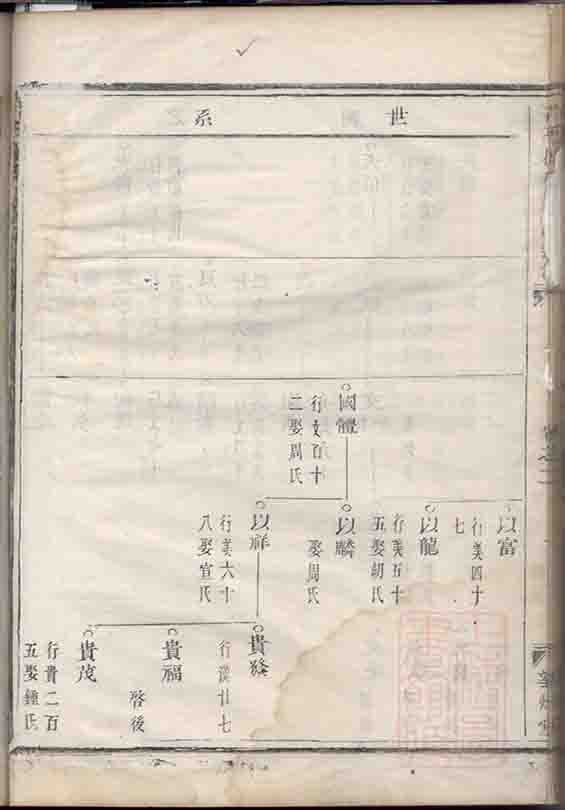 世系
國體
行文百十
二娶周氏
以富
行美四十
七
以龍
行美五十
五娶胡氏
以麟
娶周氏
以祥
行美六十
八娶宣氏
貴發
行漢廿七
貴福
啓後
貴茂
行貴二百
五娶鍾氏